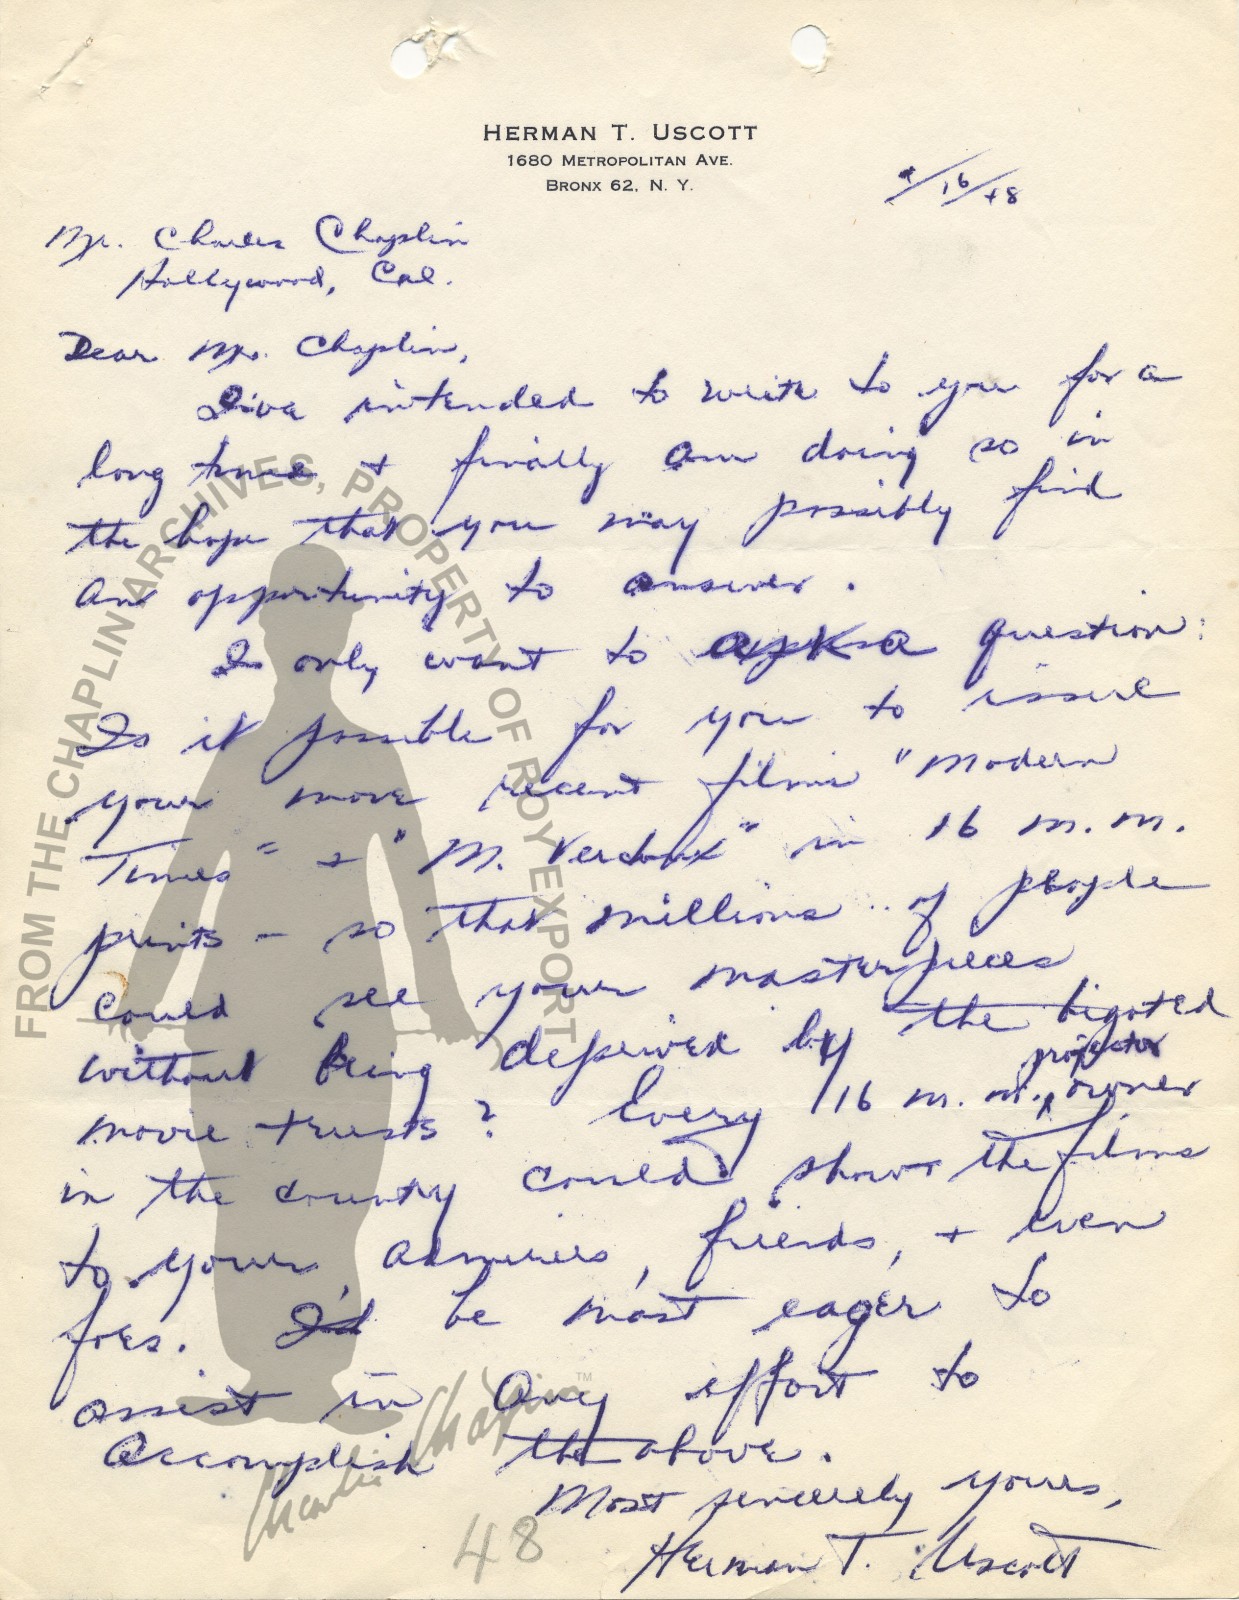 HERMAN T. USCOTT
1680 METROPOLITAN AVE.
BRONX 62, N. Y.
/16/48
Mr. Charles Chaplin
Hollywood, Cal.
Dear Mr. Chaplin,
I've intended to write to you for a
long time + finally am doing so in
the hope that you may possibly find
an opportunity to answer.
I only want to ask a question:
Is it possible for you to issue
your more recent films "Modern
Times" + "M. Verdoux" in 16 m.m.
prints - so that millions of people
could see your masterpieces
without being deprived by the bigoted
movie trusts? Every 16 m.m. projector owner
in the country could show the films
to your admirers, friends, + even
foes. I'd be most eager to
assist in any effort to
accomplish the above.
Most sincerely yours,
Herman T. Uscott
48
FROM THE CHAPLIN ARCHIVES, PROPERTY OF ROY EXPORT
Charlie Chaplin™